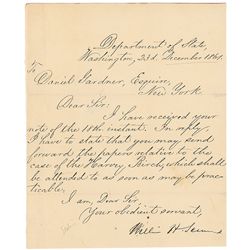 Department of State,
Washington, 23d. December 1861.
To
Daniel Gardner, Esquire,
New York
Dear Sir:
I have received your
note of the 18th instant. In reply,
I have to state that you may send
forward the papers relative to the
case of the Harvey Birch, which shall
be attended to as soon as may be prac-
ticable.
I am, Dear Sir
Your obedient servant,
William H Seward